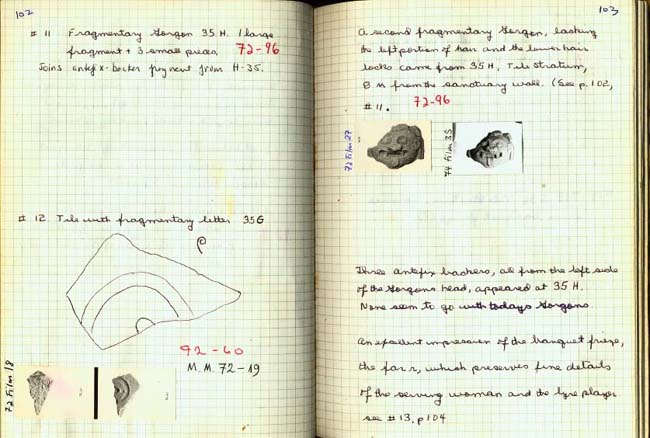 102
# 11 Fragmentary Gorgon 35 H. 1 large
fragment + 3 small pieces 72-96
Joins antefix-backer fragment from H-35.
# 12 Tile with fragmentary letter 35G
92-60
M.M. 72-19
72 Film 18
103
A second fragmentary Gorgon, lacking
the left portion of hair and the lower hair
locks came from 35H, Tile Stratum,
8 M from the sanctuary wall. (See p. 102,
# 11. 72-96
72 Film 27
74 Film 35
Three antefix backers, all from the left side
of the Gorgons head, appeared at 35 H.
None seem to go with todays Gorgons
An excellent impression of the banquet frieze,
the far r, which preserves fine details
of the serving woman and the lyre player
see # 13. p 104